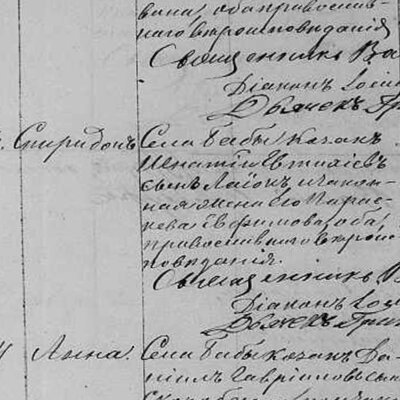 вина, оба православ-
наго вѣроисповѣданія
Священникъ Ва
Діаконъ Іоан
Дьячекъ Гри
Спиридонъ Села Бабы Качан
Игнатій Евтихіевъ
сынъ Лаіонъ, и закон-
ная жена его Парас-
кева Ефимова, оба
православнаго вѣроис
повѣданія.
Священникъ В
Діаконъ Іоан
Дьячекъ Гри
Анна. Села Бабы Качан Да-
ніилъ Гавріиловъ сынъ